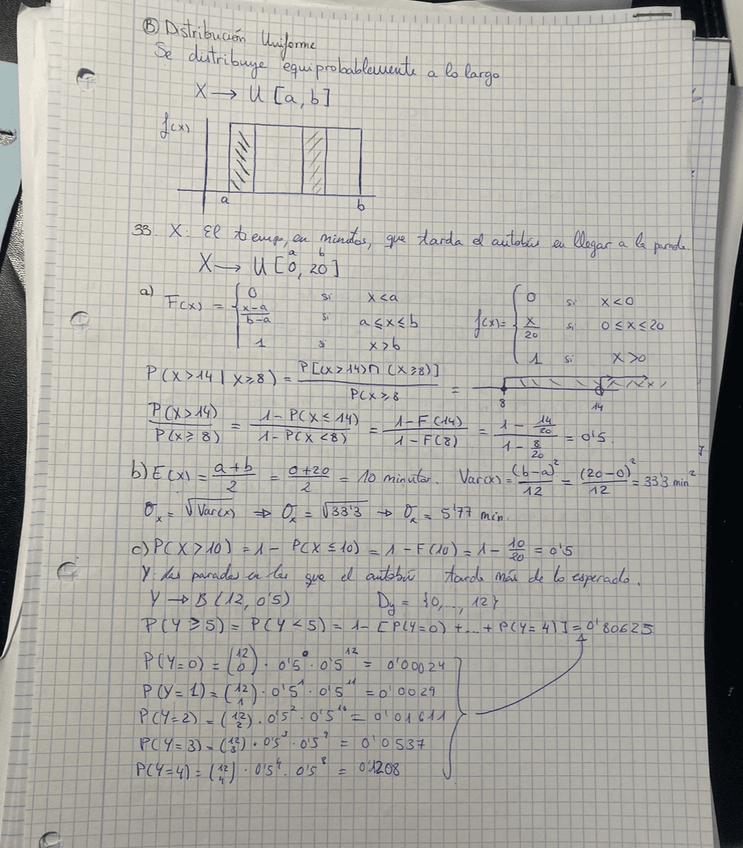 Ⓑ Distribución Uniforme
Se distribuye equiprobablemente a lo largo
X → U [a, b]
f(x)
a b
33. X: El tiemp, en minutos, que tarda el autobús en llegar a la parada.
a b
X → U [0, 20]
a) F(x) = { 0 si x<a
x-a/b-a si a≤x≤b
1 si x>b
f(x) = { 0 si x<0
x/20 si 0≤x≤20
1 si x>0
P(x>14 | x≥8) = P[(x>14)∩(x≥8)] / P(x≥8 =
8 14
P(x>14)/P(x≥8) = 1-P(x≤14)/1-P(x<8) = 1-F(14)/1-F(8) = 1-14/20 / 1-8/20 = 0'5.
b) E(x) = a+b/2 = 0+20/2 = 10 minutos. Var(x) = (b-a)²/12 = (20-0)²/12 = 33'3 min²
σₓ = √Var(x) ⇒ σₓ = √33'3 → σₓ = 5'77 min.
c) P(X>10) = 1- P(X≤10) = 1-F(10) = 1- 10/20 = 0'5
Y: las paradas en las que el autobús tarda más de lo esperado.
Y → B(12, 0'5) Dy = {0,..., 12}
P(Y≥5) = P(Y<5) = 1- [P(Y=0) +...+ P(Y=4)] = 0'80625
P(Y=0) = (12 0) · 0'5⁰ · 0'5¹² = 0'00024
P(Y=1) = (12 1) · 0'5¹ · 0'5¹¹ = 0'0029
P(Y=2) = (12 2) · 0'5² · 0'5¹⁰ = 0'01611
P(Y=3) = (12 3) · 0'5³ · 0'5⁹ = 0'0537
P(Y=4) = (12 4) · 0'5⁴ · 0'5⁸ = 0'1208